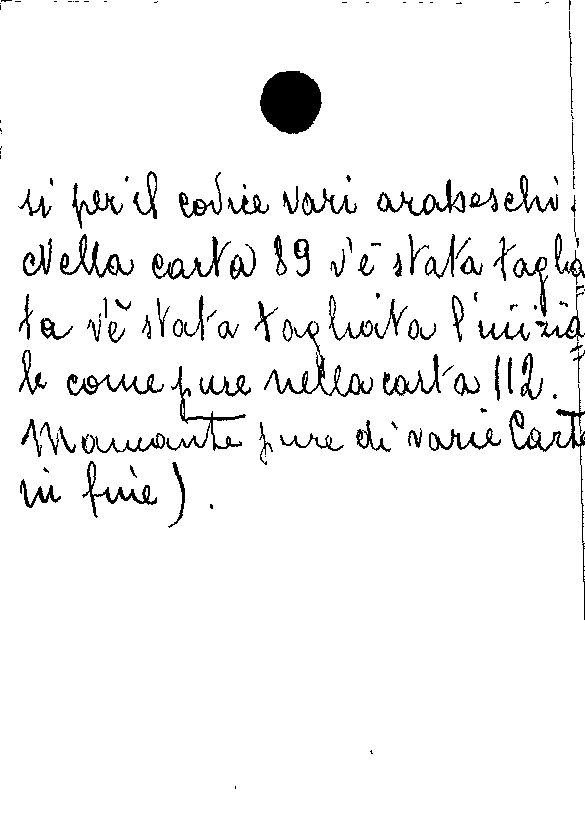 si per il codice vari arabeschi.
Nella carta 89 v'è stata taglia
ta v'è stata tagliata l'inizia=
le come pure nella carta 112.
Mancante pure di varie Carte
in fine).